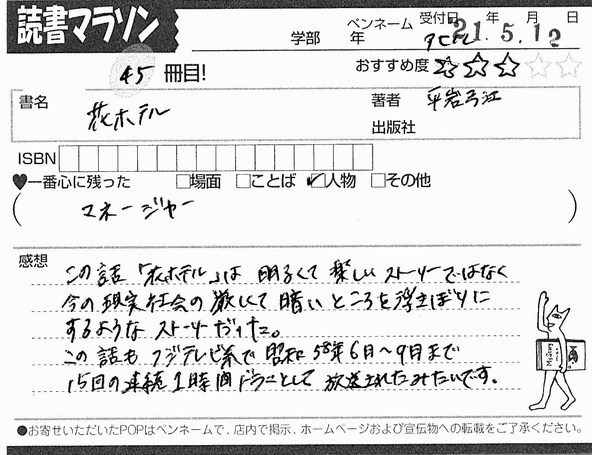 読書マラソン
学部 年 ペンネーム 受付日 年 月 日
21.5.12
45 冊目!
おすすめ度 ☆☆☆☆☆
書名 花ホテル
著者 平岩弓江
出版社
ISBN
♥一番心に残った □場面 □ことば ☑人物 □その他
( マネージャー )
感想
この話「花ホテル」は 明るくて 楽しい ストーリーではなく
今の現実社会の厳しくて 暗い ところを浮きぼりに
するような ストーリーだった。
この話も フジテレビ系で 昭和 58年6月〜9月まで
15回の連続1時間ドラマとして 放送されたみたいです。
●お寄せいただいたPOPはペンネームで、店内で掲示、ホームページおよび宣伝物への転載をご了承ください。